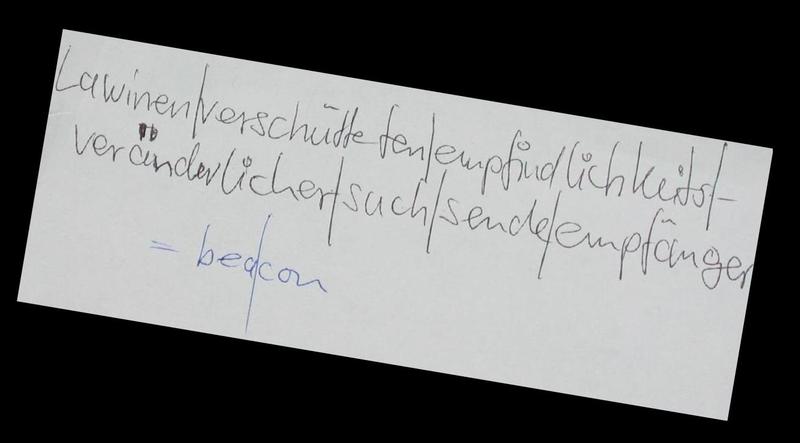 Lawinen/verschütteten/empfindlichkeits/-
veränderlicher/such/sende/empfänger
= bea/con